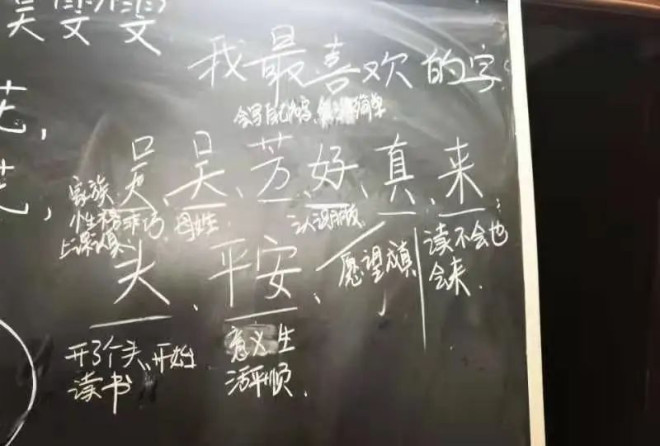 吴雯雯
我最喜欢的字
会写自己的名字、简单
吴、吴、芳、好、真、来、
家族、
性格乖巧, 母姓. 认识朋友
上课认真
头、平安、愿望成真 读不会也
会来.
开了个头、开始 意义生
读书 活平顺.